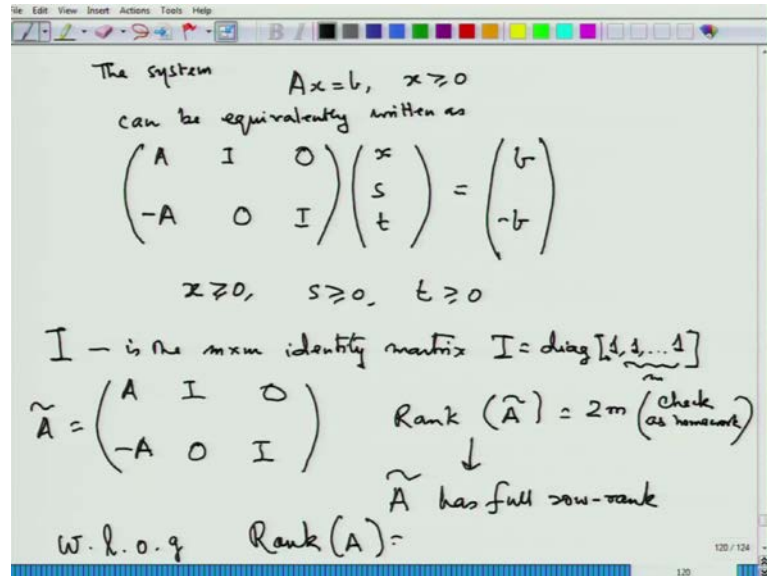 File Edit View Insert Actions Tools Help
The system Ax=b, x≥0
can be equivalently written as
( A I O ) ( x ) = ( b )
( s )
( -A O I ) ( t ) ( -b )
x≥0, s≥0, t≥0
I – is the mxm identity matrix I = diag [1,1,...1]
m
Ã = ( A I O ) Rank (Ã) = 2m (check as homework)
( -A O I ) ↓
Ã has full row-rank
w.l.o.g Rank (A) =
120 / 124
120